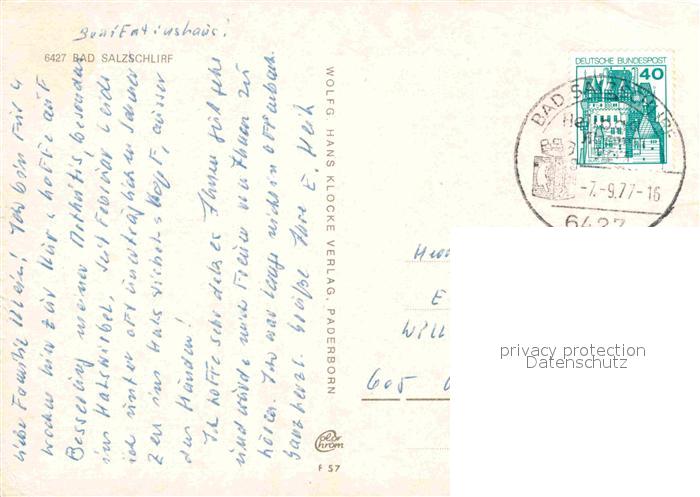 Bonifatiushaus!
6427 BAD SALZSCHLIRF
Liebe Familie Klein! Ich bin für 4
Wochen hier zur Kur u. hoffe auf
Besserung meiner Arthritis, besonders
im Halswirbel. Seit Februar leide
ich unter oft unerträglichen Schmer
zen im Hals Rücken Kopf, ausser
den Händen!
Ich hoffe sehr daß es Ihnen gut geht
und würde mich freuen von Ihnen zu
hören. Ich war lange nicht in Offenbach.
Ganz herzl. Grüße Ihre E. Heik
WOLFG. HANS KLOCKE VERLAG, PADERBORN
Color
chrom
F 57
DEUTSCHE BUNDESPOST
40
BAD SALZSCHLIRF
-7.-9.77-16
6427
E
605
privacy protection
Datenschutz